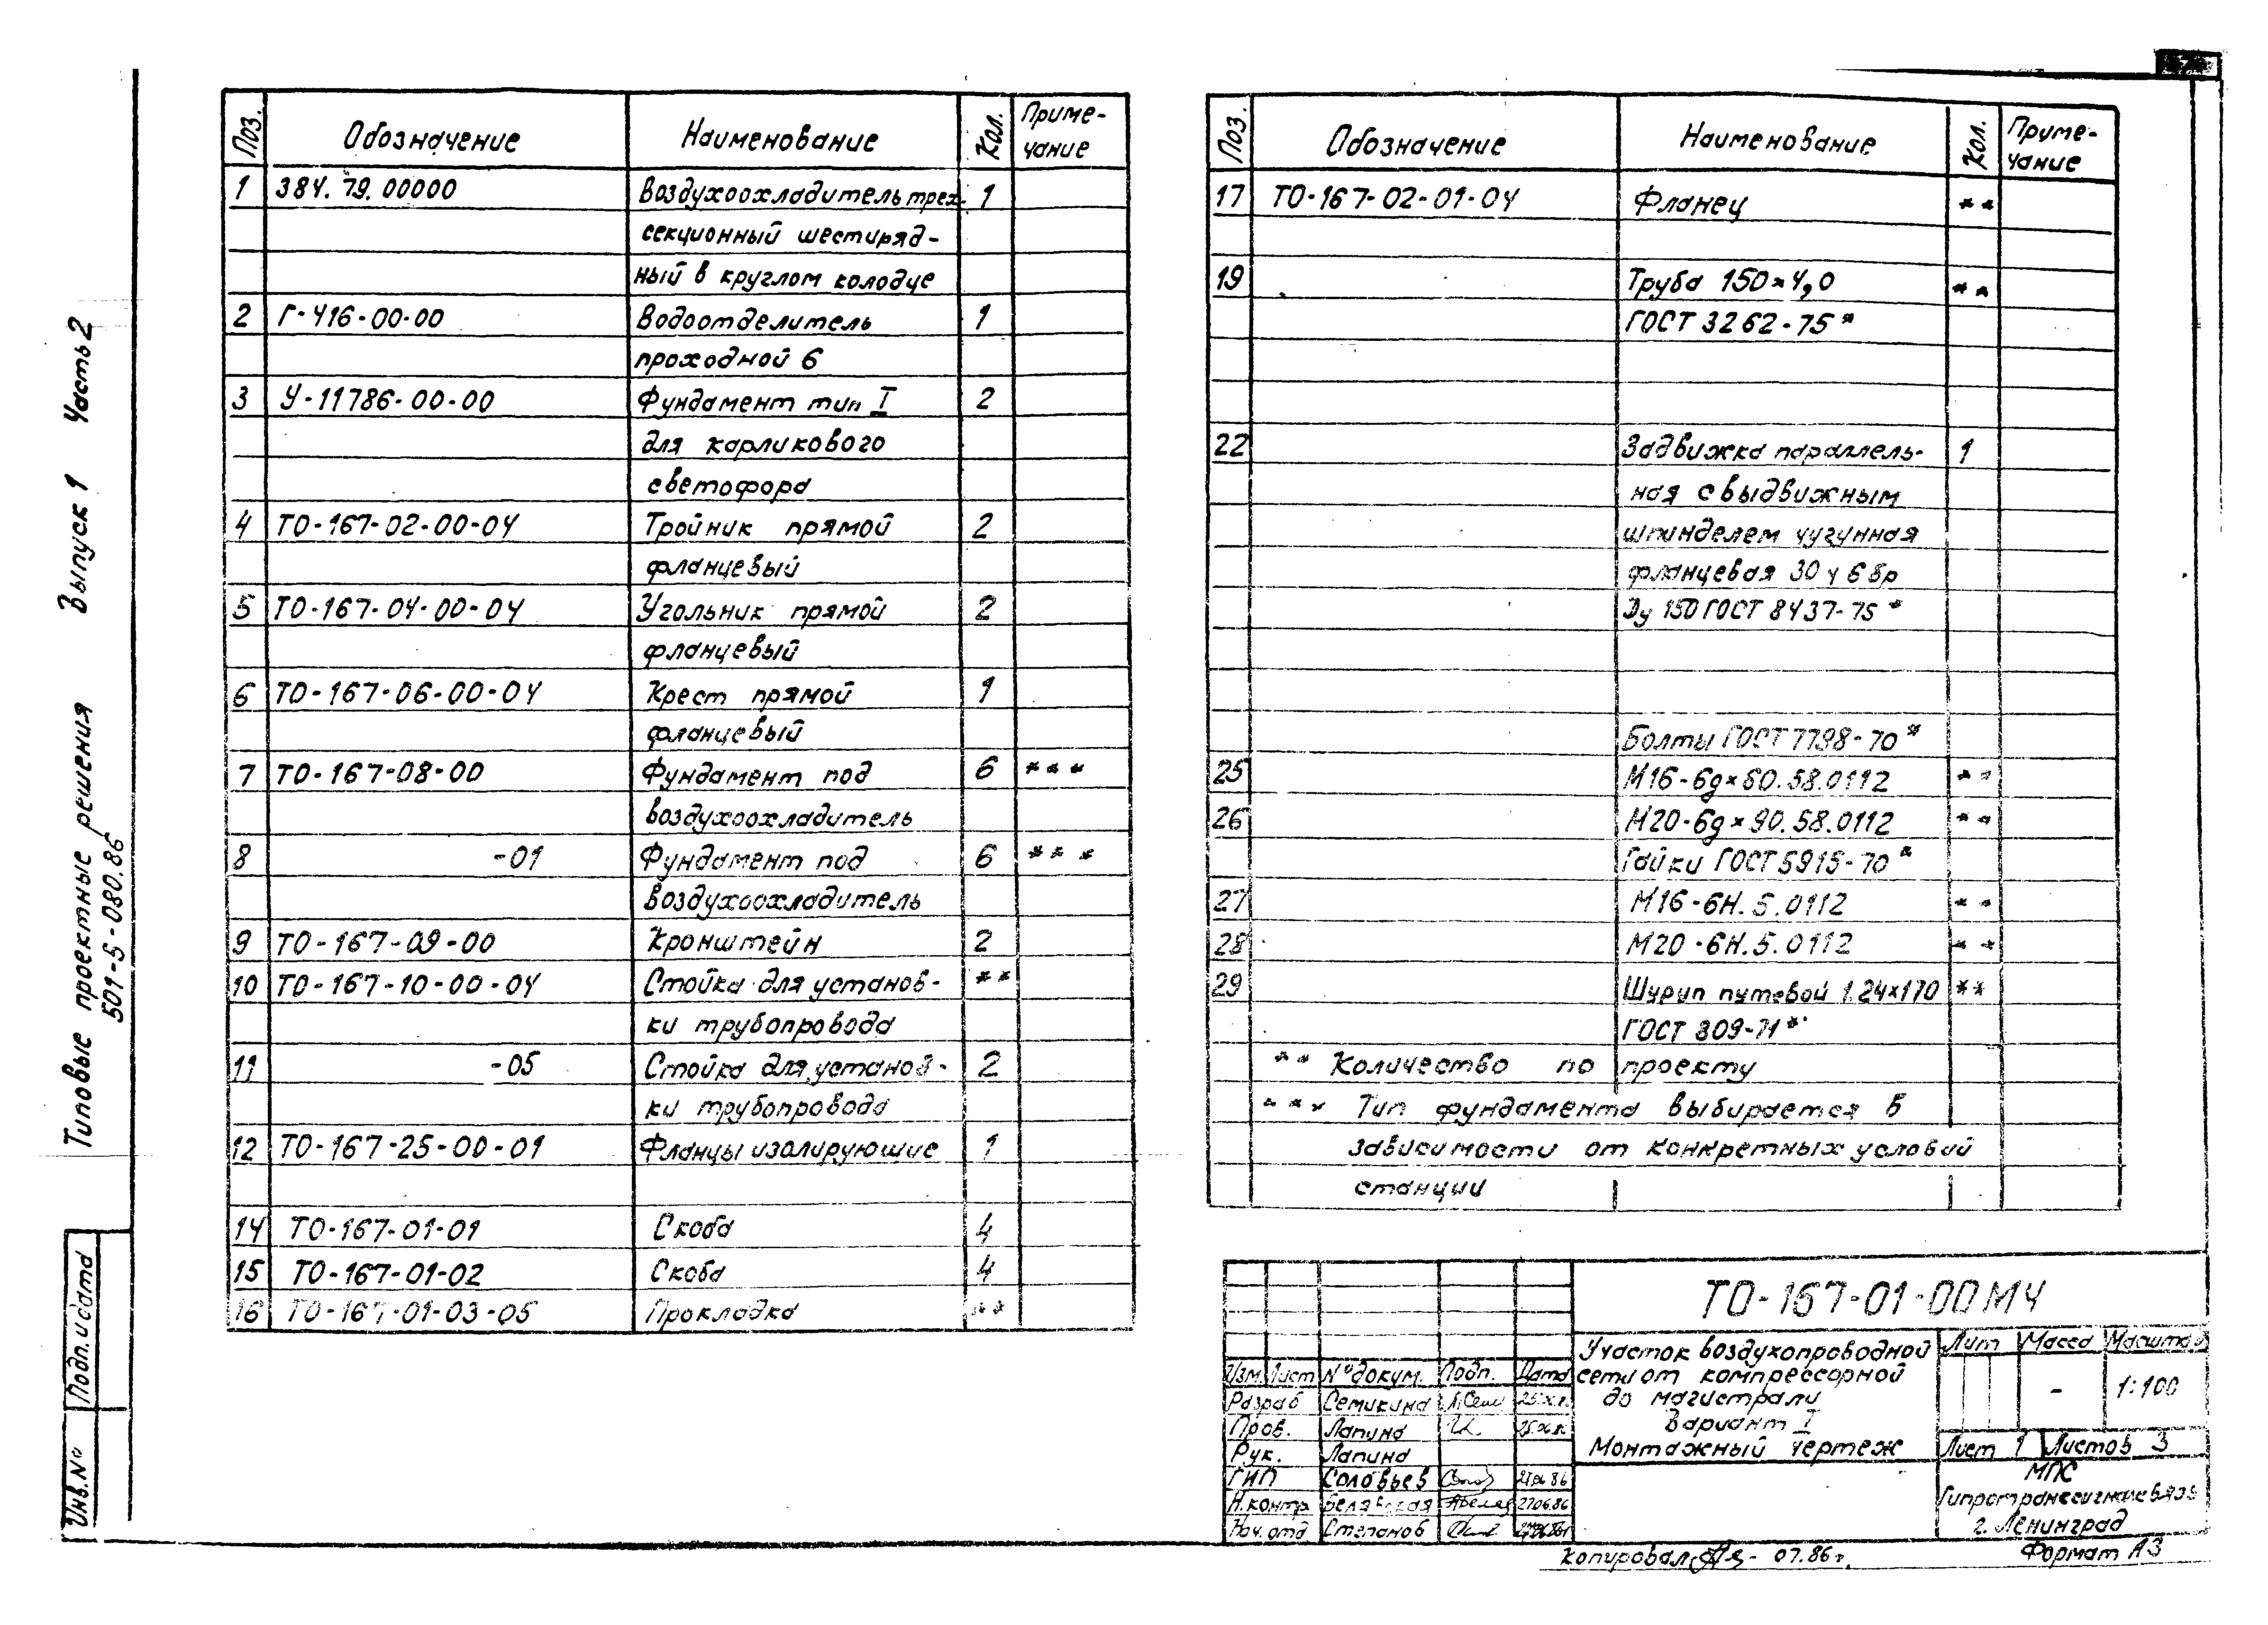 Типовые проектные решения Выпуск 1 Часть 2
501-5-080.86
Подп. и дата
Инв. №
Поз. Обозначение Наименование Кол. Приме-
чание
1 384.79.00000 Воздухоохладитель трех- 1
секционный шестиряд-
ный в круглом колодце
2 Г-416-00-00 Водоотделитель 1
проходной 6
3 У-11786-00-00 Фундамент тип I 2
для карликового
светофора
4 ТО-167-02-00-04 Тройник прямой 2
фланцевый
5 ТО-167-04-00-04 Угольник прямой 2
фланцевый
6 ТО-167-06-00-04 Крест прямой 1
фланцевый
7 ТО-167-08-00 Фундамент под 6 ***
воздухоохладитель
8 -01 Фундамент под 6 ***
воздухоохладитель
9 ТО-167-09-00 Кронштейн 2
10 ТО-167-10-00-04 Стойка для установ- **
ки трубопровода
11 -05 Стойка для установ- 2
ки трубопровода
12 ТО-167-25-00-01 Фланцы изолирующие 1
14 ТО-167-01-01 Скоба 4
15 ТО-167-01-02 Скоба 4
16 ТО-167-01-03-05 Прокладка **
Поз. Обозначение Наименование Кол. Приме-
чание
17 ТО-167-02-01-04 Фланец **
19 Труба 150×4,0 **
ГОСТ 3262-75*
22 Задвижка параллель- 1
ная с выдвижным
шпинделем чугунная
фланцевая 30ч6бр
Ду 150 ГОСТ 8437-75*
Болты ГОСТ 7798-70*
25 М16-6g×60.58.0112 **
26 М20-6g×90.58.0112 **
Гайки ГОСТ 5915-70*
27 М16-6Н.5.0112 **
28 М20-6Н.5.0112 **
29 Шуруп путевой 1.24×170 **
ГОСТ 809-71*
** Количество по проекту
*** Тип фундамента выбирается в
зависимости от конкретных условий
станции
ТО-167-01-00МЧ
Участок воздухопроводной
сети от компрессорной
до магистрали
Вариант I
Монтажный чертеж
Лит Масса Масштаб
- 1:100
Лист 1 Листов 3
МПС
Гипротранссигналсвязь
г. Ленинград
Изм. Лист № докум. Подп. Дата
Разраб Семикина
Пров. Лапина
Рук. Лапина
ГИП Соловьев
Н.контр Белявская 27.06.86
Нач. отд Степанов
Копировал 07.86г.
Формат А3